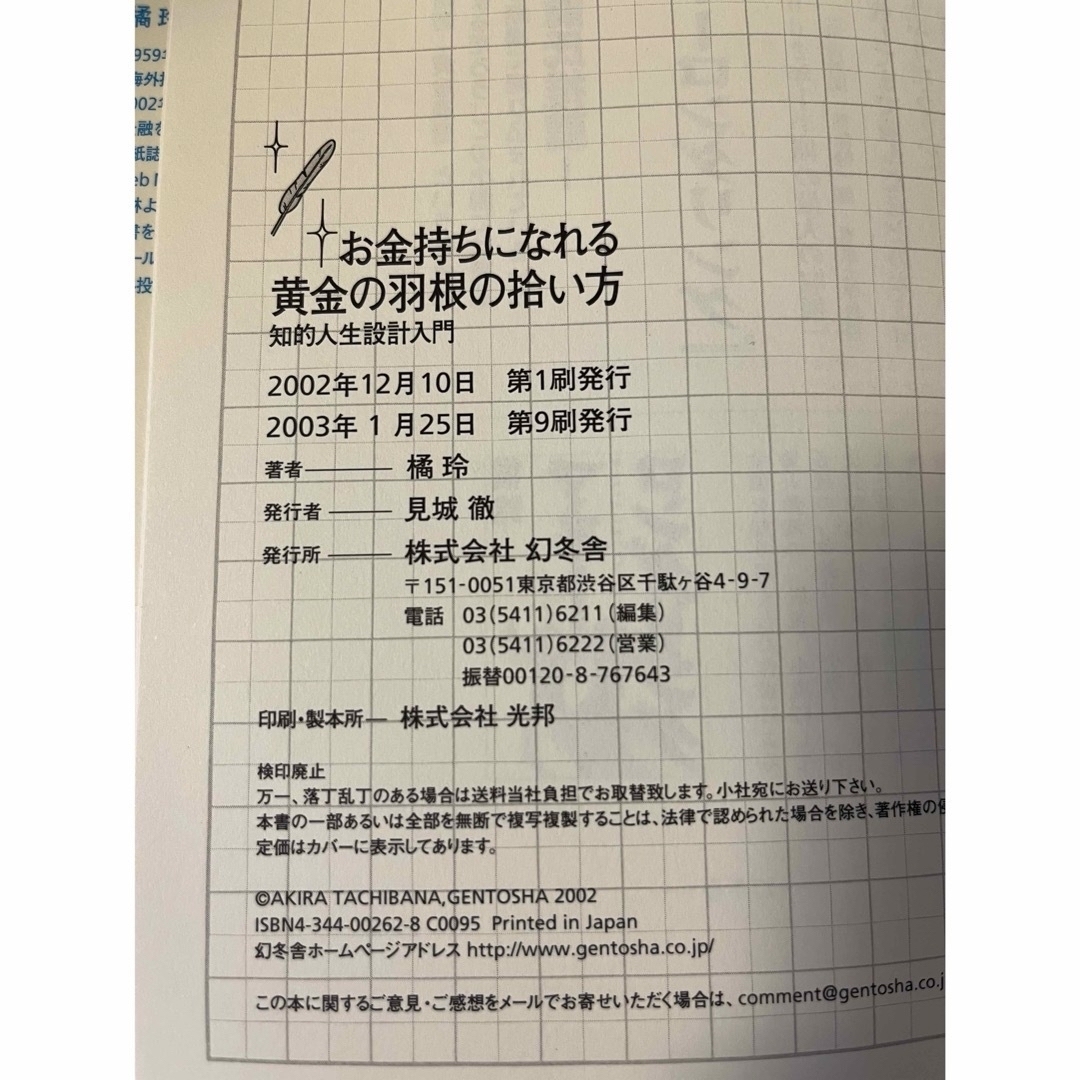 橘 玲
959年
海外投
002年
融を
紙誌
eb
林よ
書を
ール
投
お金持ちになれる
黄金の羽根の拾い方
知的人生設計入門
2002年12月10日 第1刷発行
2003年 1 月25日 第9刷発行
著者 橘 玲
発行者 見城 徹
発行所 株式会社 幻冬舎
〒151-0051東京都渋谷区千駄ヶ谷4-9-7
電話 03(5411)6211(編集)
03(5411)6222(営業)
振替00120-8-767643
印刷・製本所 株式会社 光邦
検印廃止
万一、落丁乱丁のある場合は送料当社負担でお取替致します。小社宛にお送り下さい。
本書の一部あるいは全部を無断で複写複製することは、法律で認められた場合を除き、著作権の
定価はカバーに表示してあります。
©AKIRA TACHIBANA,GENTOSHA 2002
ISBN4-344-00262-8 C0095 Printed in Japan
幻冬舎ホームページアドレス http://www.gentosha.co.jp/
この本に関するご意見・ご感想をメールでお寄せいただく場合は、comment@gentosha.co.j